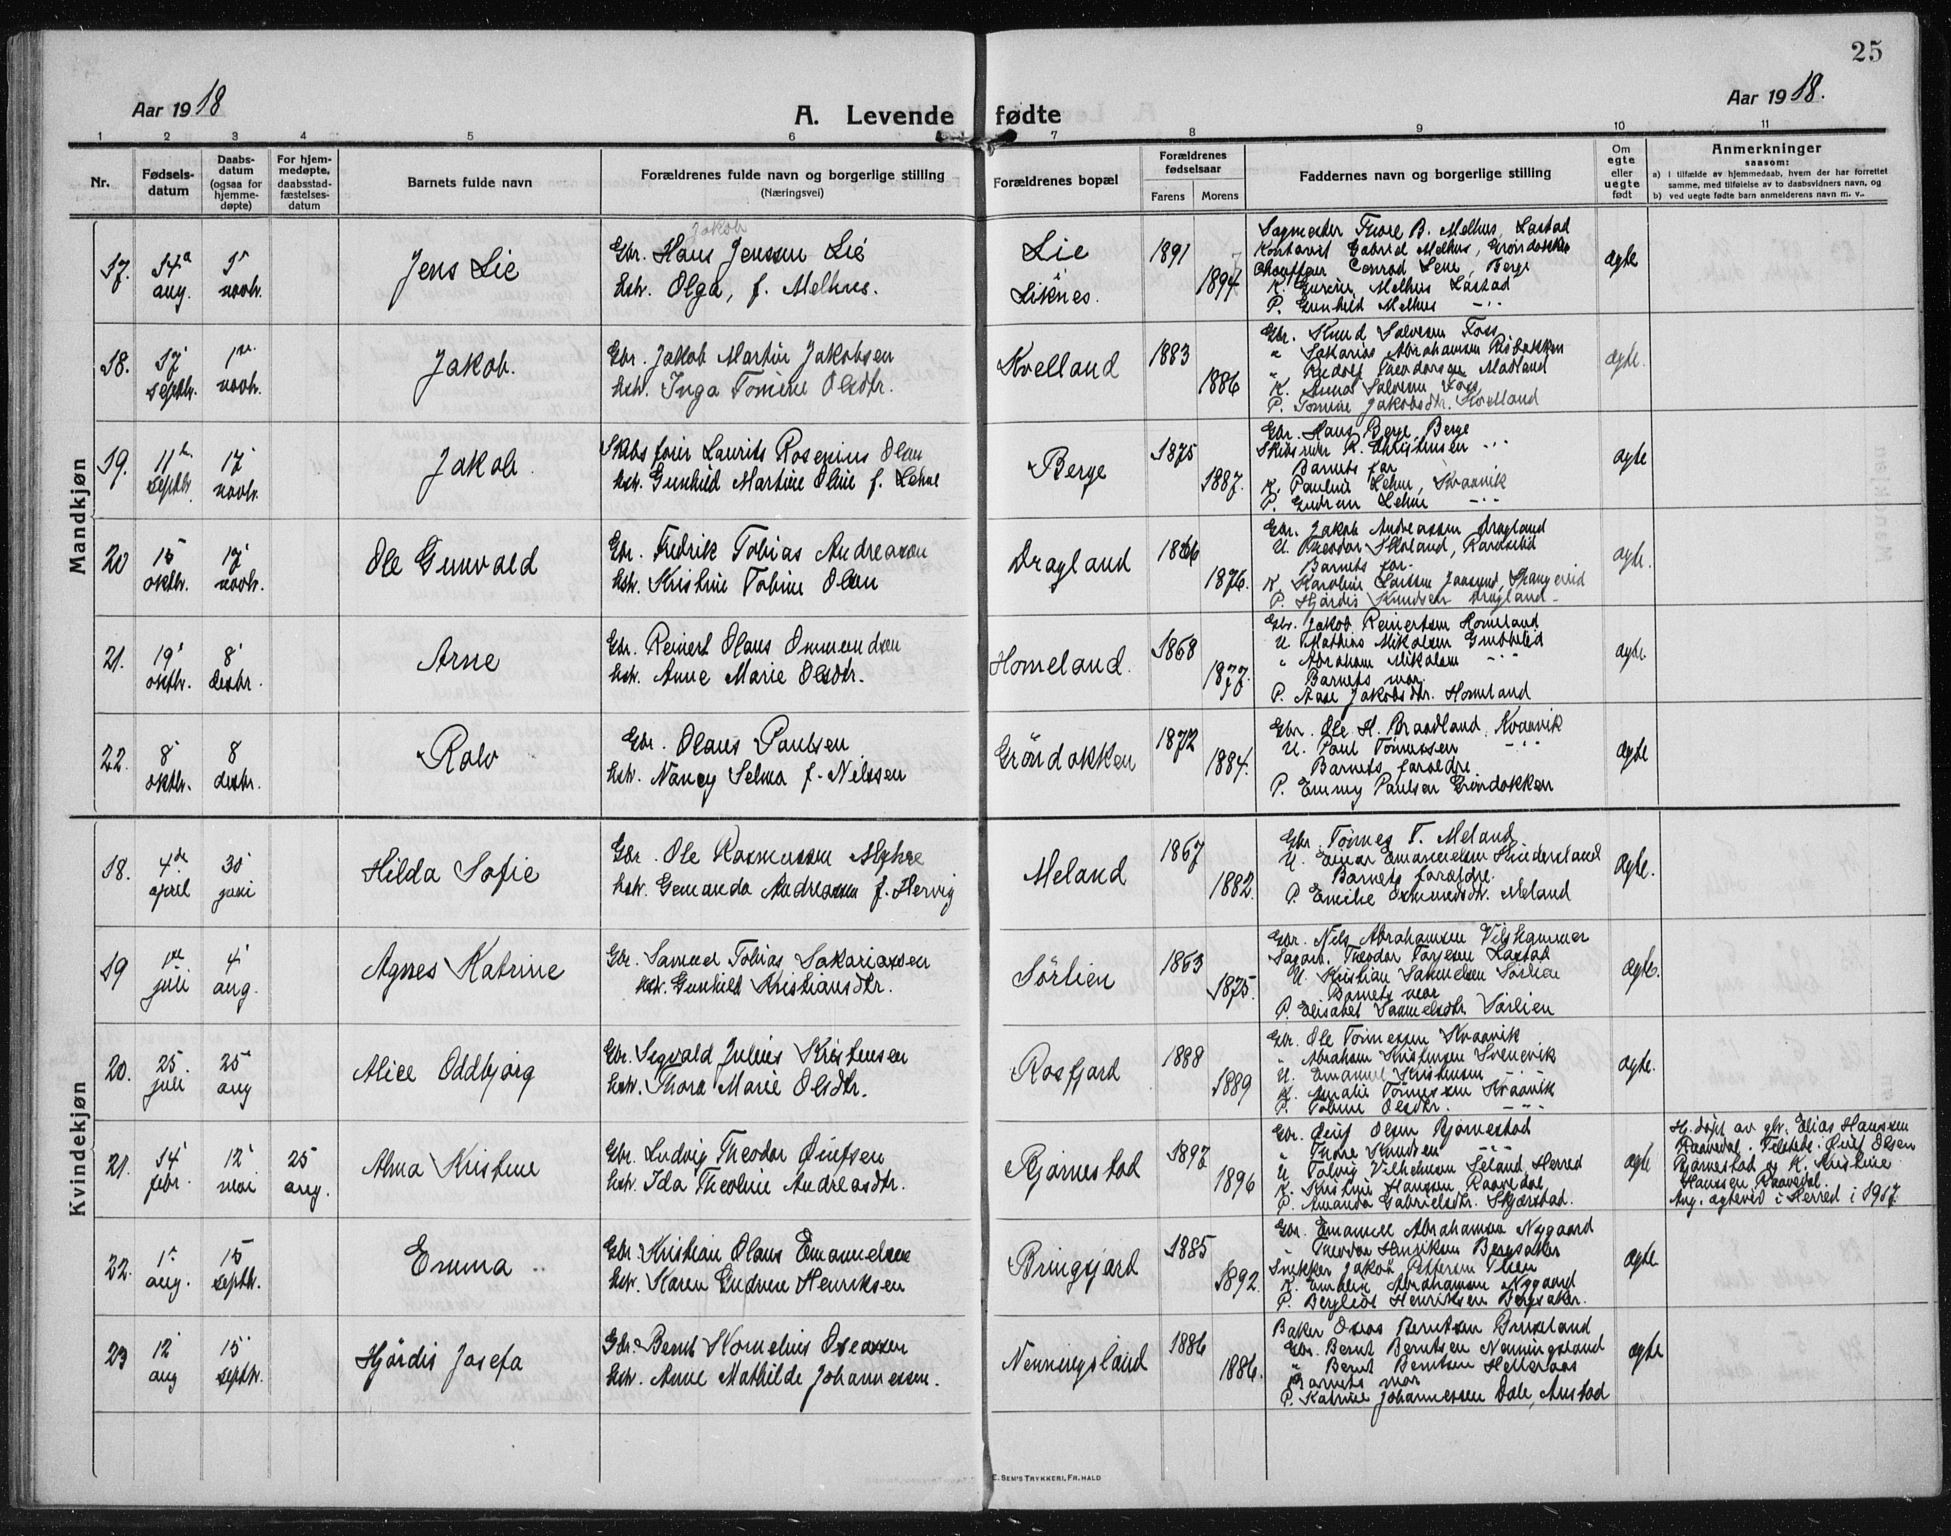 25
Aar 1918
A. Levende fødte
Aar 1918.
1 2 3 4 5 6 7 8 9 10 11
Nr.
Fødsels-
datum
Daabs-
datum
(ogsaa for
hjemme-
døpte)
For hjem-
medøpte,
daabsstad-
fæstelses-
datum
Barnets fulde navn
Forældrenes fulde navn og borgerlige stilling
(Næringsvei)
Forældrenes bopæl
Forældrenes
fødselsaar
Farens Morens
Faddernes navn og borgerlige stilling
Om
egte
eller
uegte
født
Anmerkninger
saasom:
a) i tilfælde av hjemmedaab, hvem der har forrettet
samme, med tilføielse av to daabsvidners navn, og
b) ved uegte fødte barn anmelderens navn m. v..
Mandkjøn
17.
14 aug.
novbr.
Jens Lie
Jakob
Gbr. Hans Jenssen Lie
hstr. Olga, f. Melhus.
Lie
Liknes.
1891
1894
Thore B. Melhus, Lastad
Kontorist Gabriel Melhus, Gröndokken
Chauffør Conrad Lene, Berge
Melhus Lastad
P. Gunhild Melhus
ægte
18.
17 septbr.
1 novbr.
Jakob.
Gbr. Jakob Martin Jakobsen
hstr. Inga Tomine Olsdtr.
Kvelland
1883
1886
Gbr. Knud Salvesen Foss
" Sakarias Abrahamsen Risbakken
" Theodorsen Mødland
K. Anna Salvesen Foss
P. Tomine Jakobsdtr. Kvelland
ægte.
19.
11 septbr.
17 novbr.
Jakob.
Skibsfører Laurits Rosenius Olsen
hstr. Gunhild Martine Oline f. Lehne
Berge
1875
1887.
Gbr. Hans Berge, Berge
R. Christensen
Barnets far
K. Pauline Lehne, Kvaavik
P. Gudrun Lehne
ægte
20
15 oktbr.
17 novbr.
Ole Gunvald
Gbr. Fredrik Tobias Andreassen
hstr. Kristine Tobine Olsen
Dragland
1866
1876.
Gbr. Jakob Andreassen Dragland
U. Theodor Skoland,
Barnets far.
K. Karoline Larssen
P. Hjørdis Knudsen Dragland
ægte.
21.
19 oktbr.
8 desbr.
Arne
Gbr. Reinert Olaus Ommundsen
hstr. Anne Marie Olsdtr.
Homeland.
1868
1877.
Gbr. Jakob Reinertsen Homeland
U. Mathias Mikalsen
" Abraham Mikalsen
Barnets mor.
P. Aase Jakobsdtr. Homeland
ægte.
22.
8 oktbr.
8 desbr.
Rolv
Gbr. Olaus Paulsen
hstr. Nancy Selma f. Nilssen
Gröndokken
1872
1884.
Gbr. Ole H. Braadland Kvaavik
U. Paul Tönnessen
Barnets foreldre
P. Emmy Paulsen Gröndokken
ægte
Kvindekjøn
18.
4de april
30 juni
Hilda Sofie
Gbr. Ole Rasmussen Myhre
hstr. Gemanda Andreassen f. Hervig
Meland
1867
1882.
Gbr. Tønnes T. Meland
U. Einar Emanuelsen
Barnets forældre.
P. Emilie Osmundsdtr. Meland
ægte.
19
juli
4 aug.
Agnes Katrine
Gbr. Samuel Tobias Sakariassen
hstr. Gunhild Kristiansdtr.
Sörlien
1863
1875.
Gbr. Nils Abrahamsen
Theodor Torjesen Lastad
U. Kristian Samuelsen Sörlien
Barnets mor
P. Elisabet Samuelsdtr Sörlien
ægte.
20.
25. juli
25 aug
Alice Oddbjörg
Gbr. Sigvald Julius Kristensen
hstr. Thora Marie Olsdtr.
Rosfjord
1888
1889
Gbr. Ole Tönnessen Kvaavik
" Abraham Kristensen Svenevik
U. Emanuel Kristensen
K. Amalie Tönnessen Kvaavik
P. Tobine Olsdtr.
ægte.
21.
14 febr.
12 mai
25 aug.
Alma Kristine
Gbr. Ludvig Theodor Öiufsen
hstr. Ida Theoline Andreasdtr.
Bjørnestad
1897
1896
Gbr. Olsen Bjørnestad
" Thore Knudsen
U. Tolvig Vilhelmsen Seland, Herred
K. Kristine Hanssen Raavedal
P. Amanda Gabrielsdtr. Skjærstad.
ægte
H. døpt av gbr. Elias Hanssen
Raavedal. Tilstede: Olsen
Bjørnestad og K. Kristine
Hanssen Raavedal.
Ang. ægtevid i Herred i 1917
22.
aug.
15 septbr.
Emma
Gbr. Kristian Olaus Emanuelsen
hstr. Karen Gudrune Henriksen
Bringsjord
1885
1892.
Gbr. Emanuel Abrahamsen Nygaard
" Theodor Henriksen Bergsaker
Snekker Jakob Pettersen
K. Emelie Abrahamsen Nygaard
P. Bergliot Henriksen Bergsaker.
ægte.
23
12 aug
15 septbr.
Hjördis Josefa
Gbr. Bernt Kornelius Oseassen
hstr. Anne Mathilde Johannessen.
Nenningsland
1886
1886.
Baker Oseas Berntsen
Gbr. Bernt Berntsen Nenningsland
" Bernt Berntsen Helleraas
Barnets mor
P. Katrine Johannessen Dale, Austad
ægte
E. SEM'S TRYKKERI, FR.HALD